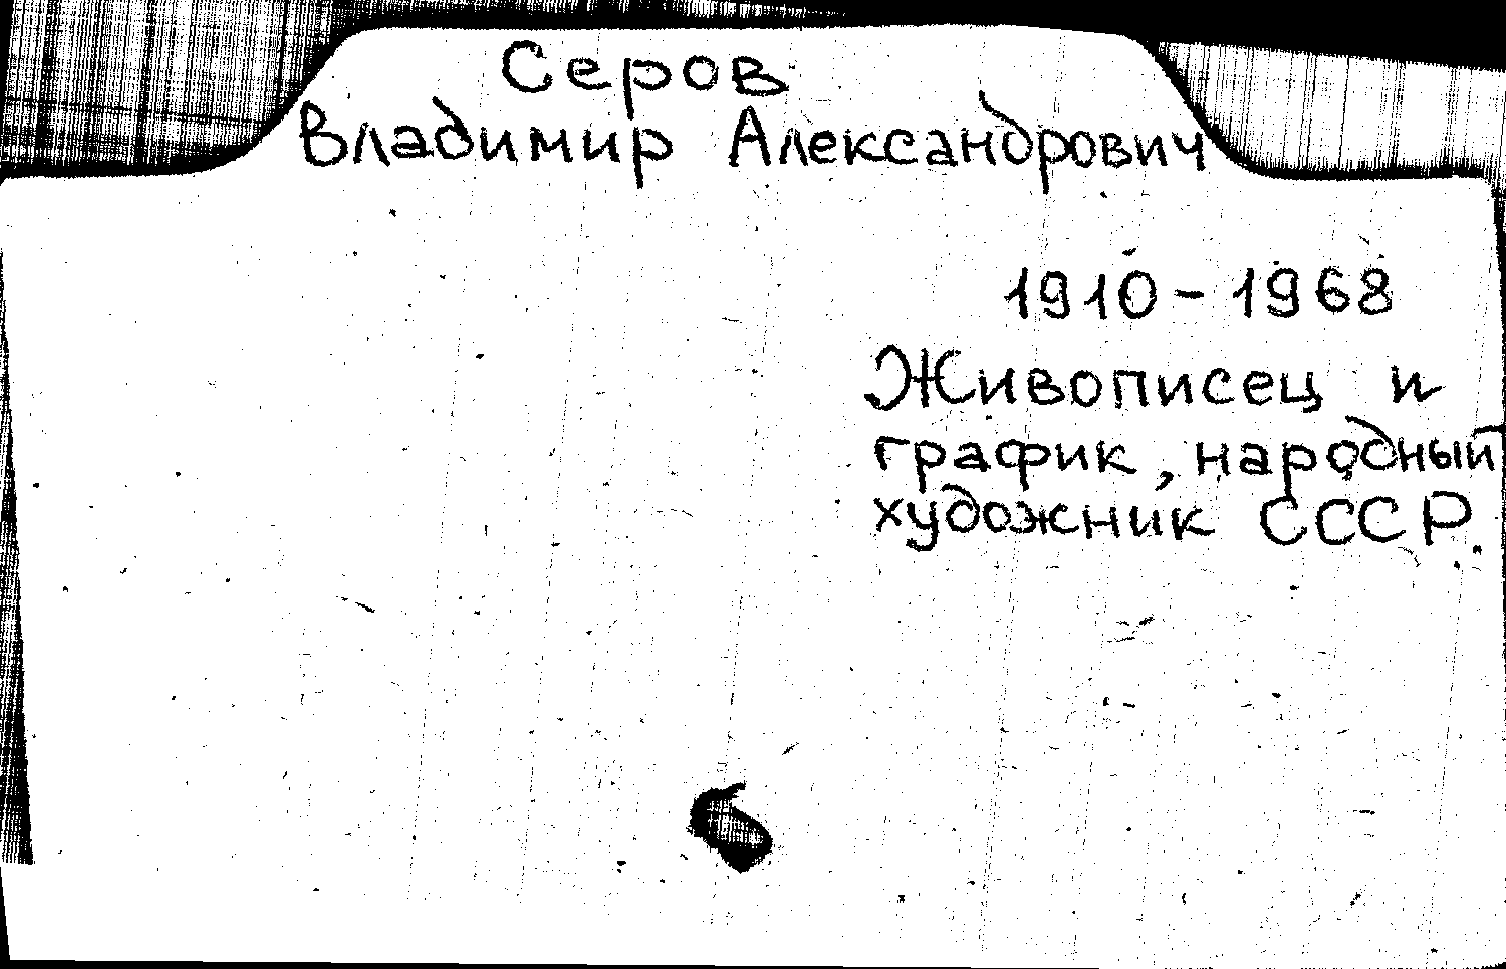 Серов
Владимир Александрович
1910 - 1968
Живописец и
график, народный
художник СССР.